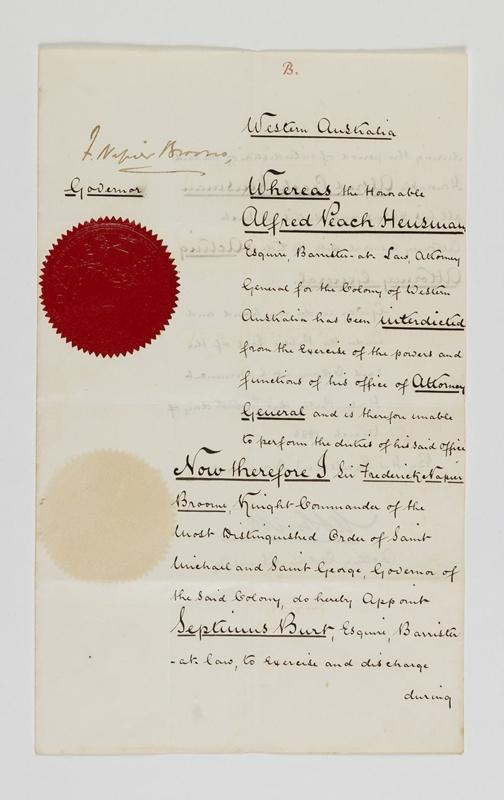 B.
Western Australia
F. Napier Broome,
Governor
Whereas the Honorable
Alfred Peach Hensman
Esquire, Barrister-at-Law, Attorney
General for the Colony of Western
Australia has been interdicted
from the Exercise of the powers and
functions of his office of Attorney
General and is therefore unable
to perform the duties of his said Office
Now therefore I Sir Frederick Napier
Broome, Knight Commander of the
Most Distinguished Order of Saint
Michael and Saint George, Governor of
the said Colony, do hereby Appoint
Septimus Burt, Esquire, Barrister
-at-law, to Exercise and discharge
during